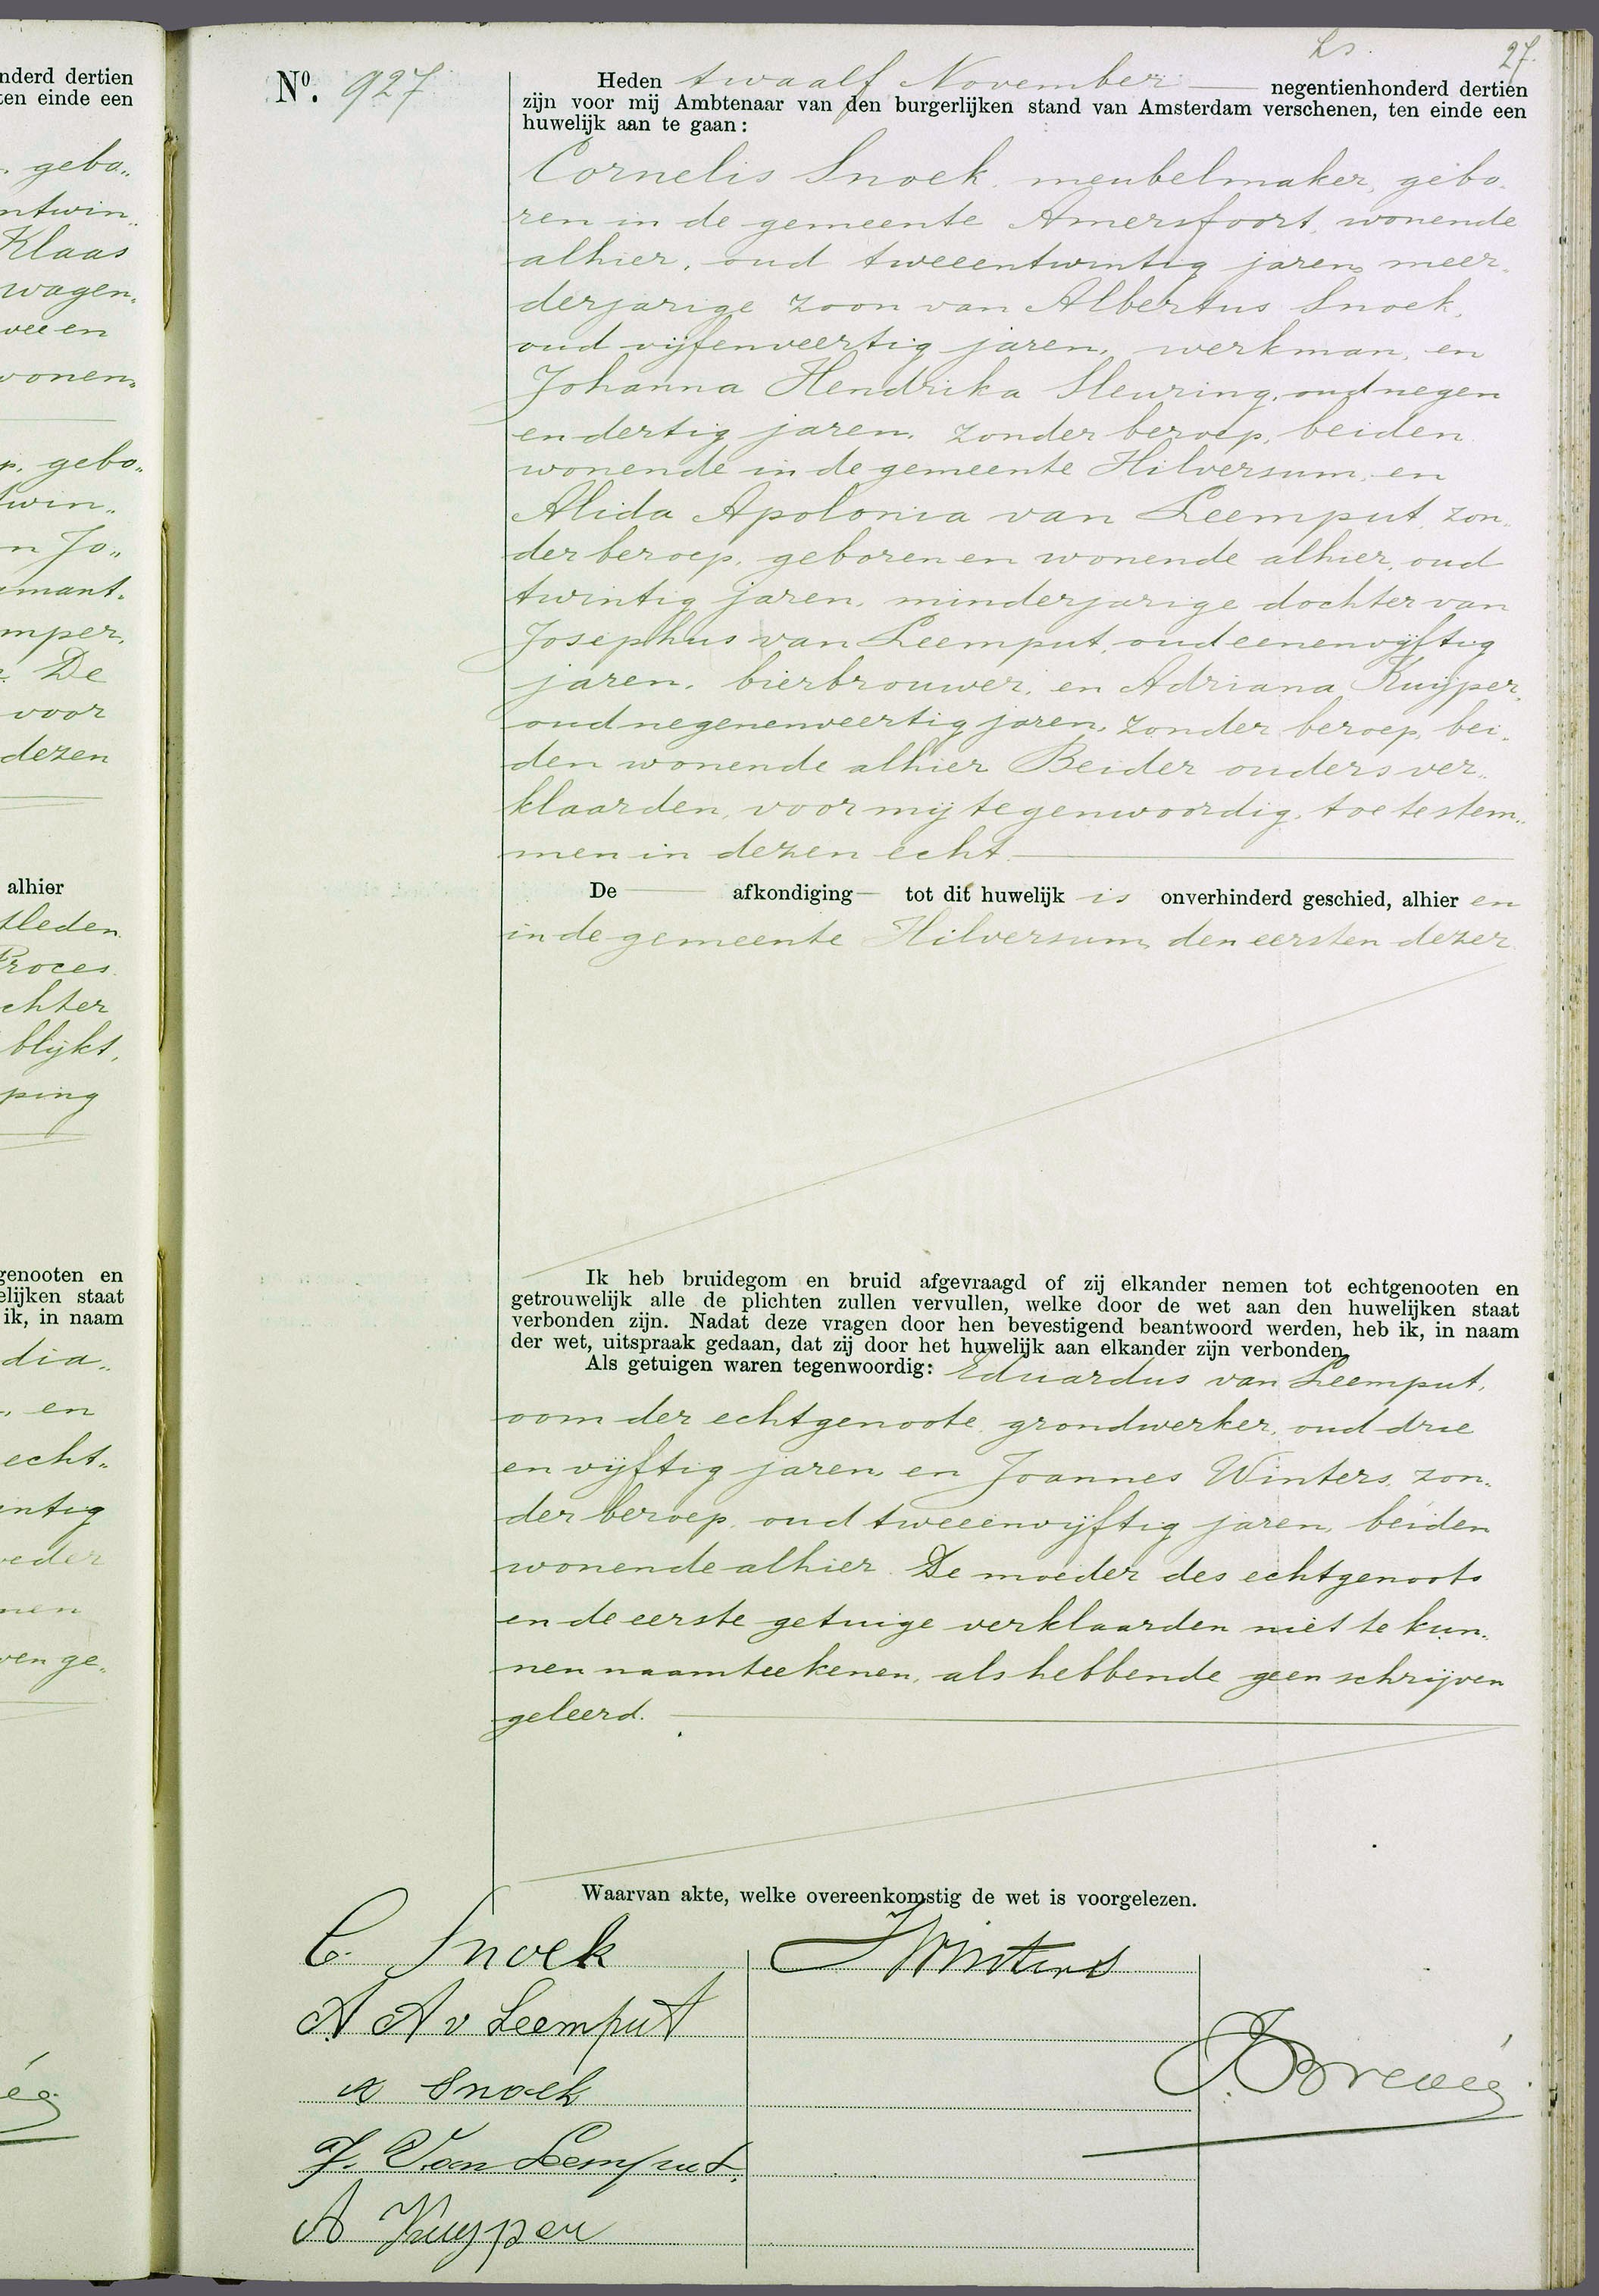 nderd dertien
ten einde een
. gebo„
ntwin„
Klaas
wagen„
vee en
wonen„
p. gebo„
twin„
n Jo„
amant„
mper,
De
voor
dezen
alhier
leden
Proces
chter
blijkt,
ping
genooten en
elijken staat
ik, in naam
dia„
, en
echt„
intig
oeder
men
ven ge„
27.
Nº. 927
Heden twaalf November negentienhonderd dertien
zijn voor mij Ambtenaar van den burgerlijken stand van Amsterdam verschenen, ten einde een
huwelijk aan te gaan:
Cornelis Snoek, meubelmaker, gebo„
ren in de gemeente Amersfoort, wonende
alhier, oud tweeentwintig jaren, meer„
derjarige zoon van Albertus Snoek,
oud vijfenveertig jaren, werkman, en
Johanna Hendrika Sleuring, oud negen
en dertig jaren, zonder beroep, beiden
wonende in de gemeente Hilversum, en
Alida Apolonia van Leemput, zon„
der beroep, geboren en wonende alhier, oud
twintig jaren, minderjarige dochter van
Josephus van Leemput, oud eenenvijftig
jaren, bierbrouwer, en Adriana Kuijper,
oud negenenveertig jaren, zonder beroep, bei„
den wonende alhier Beider ouders ver„
klaarden, voor mij tegenwoordig, toe te stem„
men in dezen echt.
De afkondiging tot dit huwelijk is onverhinderd geschied, alhier en
in de gemeente Hilversum, den eersten dezer.
Ik heb bruidegom en bruid afgevraagd of zij elkander nemen tot echtgenooten en
getrouwelijk alle de plichten zullen vervullen, welke door de wet aan den huwelijken staat
verbonden zijn. Nadat deze vragen door hen bevestigend beantwoord werden, heb ik, in naam
der wet, uitspraak gedaan, dat zij door het huwelijk aan elkander zijn verbonden.
Als getuigen waren tegenwoordig: Eduardus van Leemput,
oom der echtgenoote, grondwerker, oud drie
en vijftig jaren, en Joannes Winters, zon„
der beroep, oud tweeënvijftig jaren, beiden
wonende alhier. De moeder des echtgenoots
en de eerste getuige verklaarden niet te kun„
nen naamteekenen, als hebbende geen schrijven
geleerd.
Waarvan akte, welke overeenkomstig de wet is voorgelezen.
C. Snoek
J Winters
A A v Leemput
A Snoek
J. Van Lemput.
A Kuyper